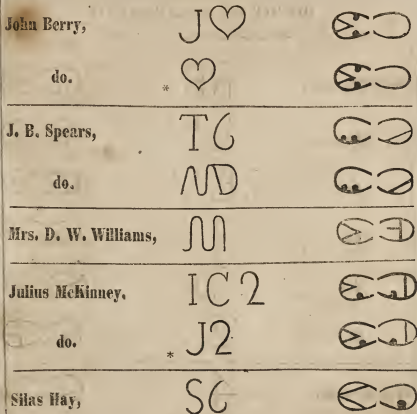 John Berry, J♡
do. * ♡
J. B. Spears, T6
do. MD
Mrs. D. W. Williams, M
Julius McKinney, IC2
do. * J2
Silas Hay, S6